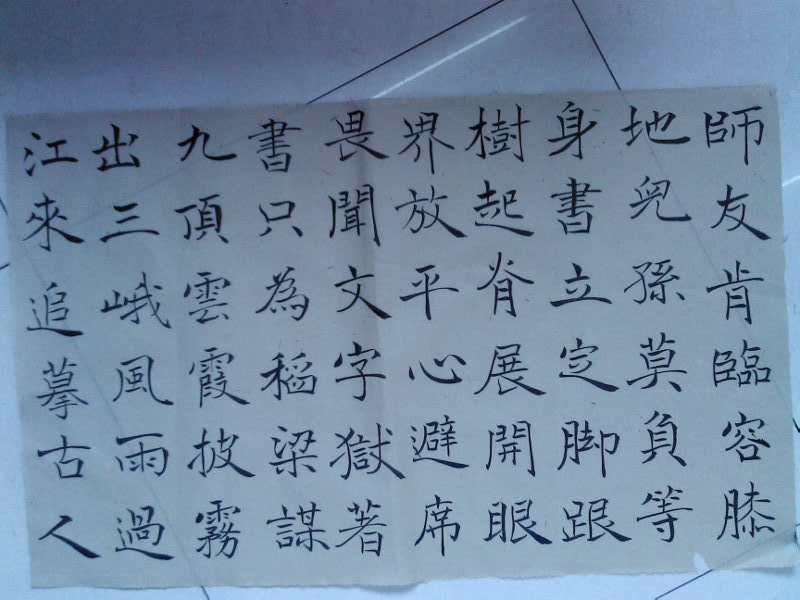 師友肯臨容膝
地兒孫莫負等
身書立定脚跟
樹起脊展開眼
界放平心避席
畏聞文字獄著
書只為稻梁謀
九頂雲霞披霧
出三峨風雨過
江來追摹古人